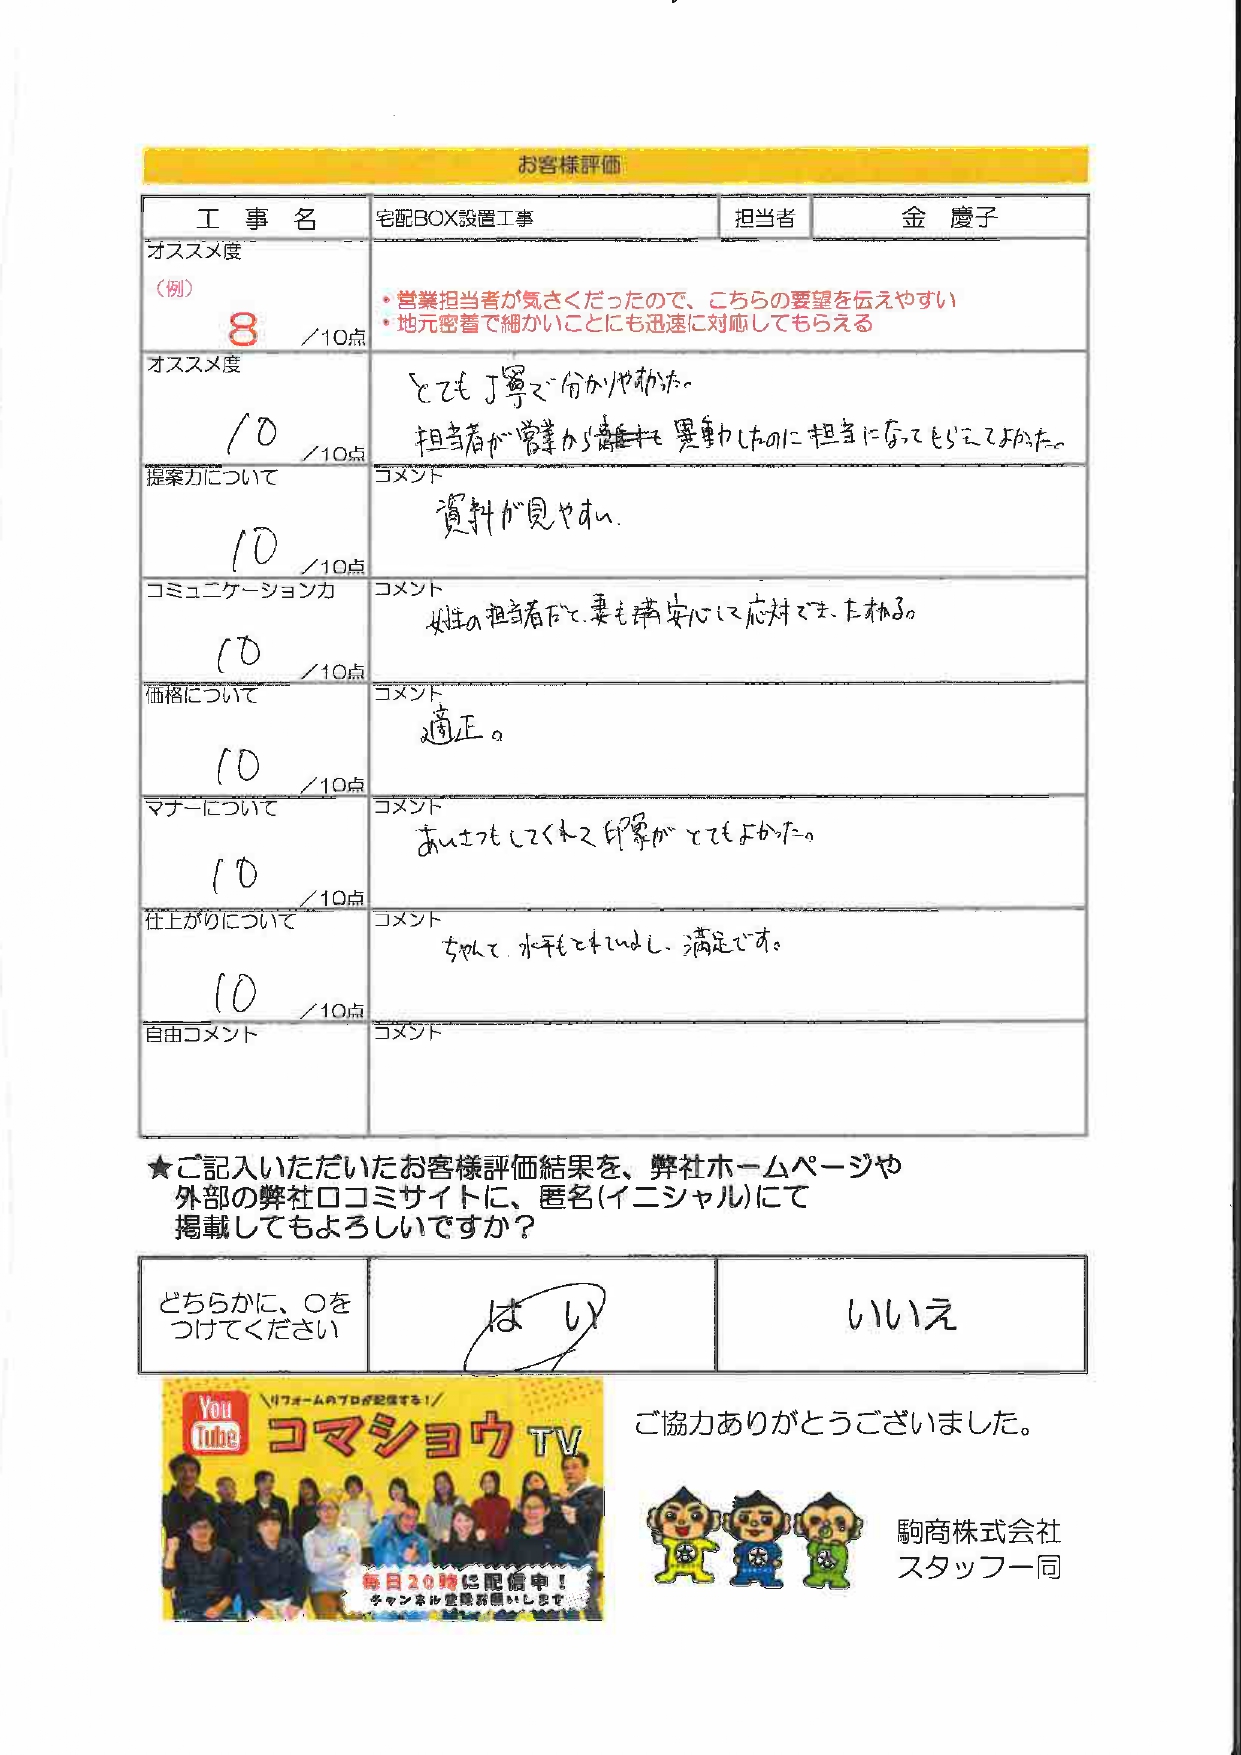 お客様評価
工 事 名 宅配BOX設置工事 担当者 金 慶子
オススメ度
(例)
8 /10点
・営業担当者が気さくだったので、こちらの要望を伝えやすい
・地元密着で細かいことにも迅速に対応してもらえる
オススメ度
10 /10点
とても丁寧で分かりやすかった。
担当者が営業から異動したのに担当になってもらえてよかった。
提案力について
10 /10点
コメント
資料が見やすい.
コミュニケーション力
10 /10点
コメント
女性の担当者だと、妻も安心して応対でき、たすかる。
価格について
10 /10点
コメント
適正。
マナーについて
10 /10点
コメント
あいさつもしてくれて印象がとてもよかった。
仕上がりについて
10 /10点
コメント
ちゃんと、水平もとれているし、満足です。
自由コメント
コメント
★ご記入いただいたお客様評価結果を、弊社ホームページや
外部の弊社口コミサイトに、匿名(イニシャル)にて
掲載してもよろしいですか?
どちらかに、○を
つけてください
は い
いいえ
You Tube
\リフォームのプロが配信する!/
コマショウTV
毎日20時に配信中!
チャンネル登録お願いします
ご協力ありがとうございました。
駒商株式会社
スタッフ一同